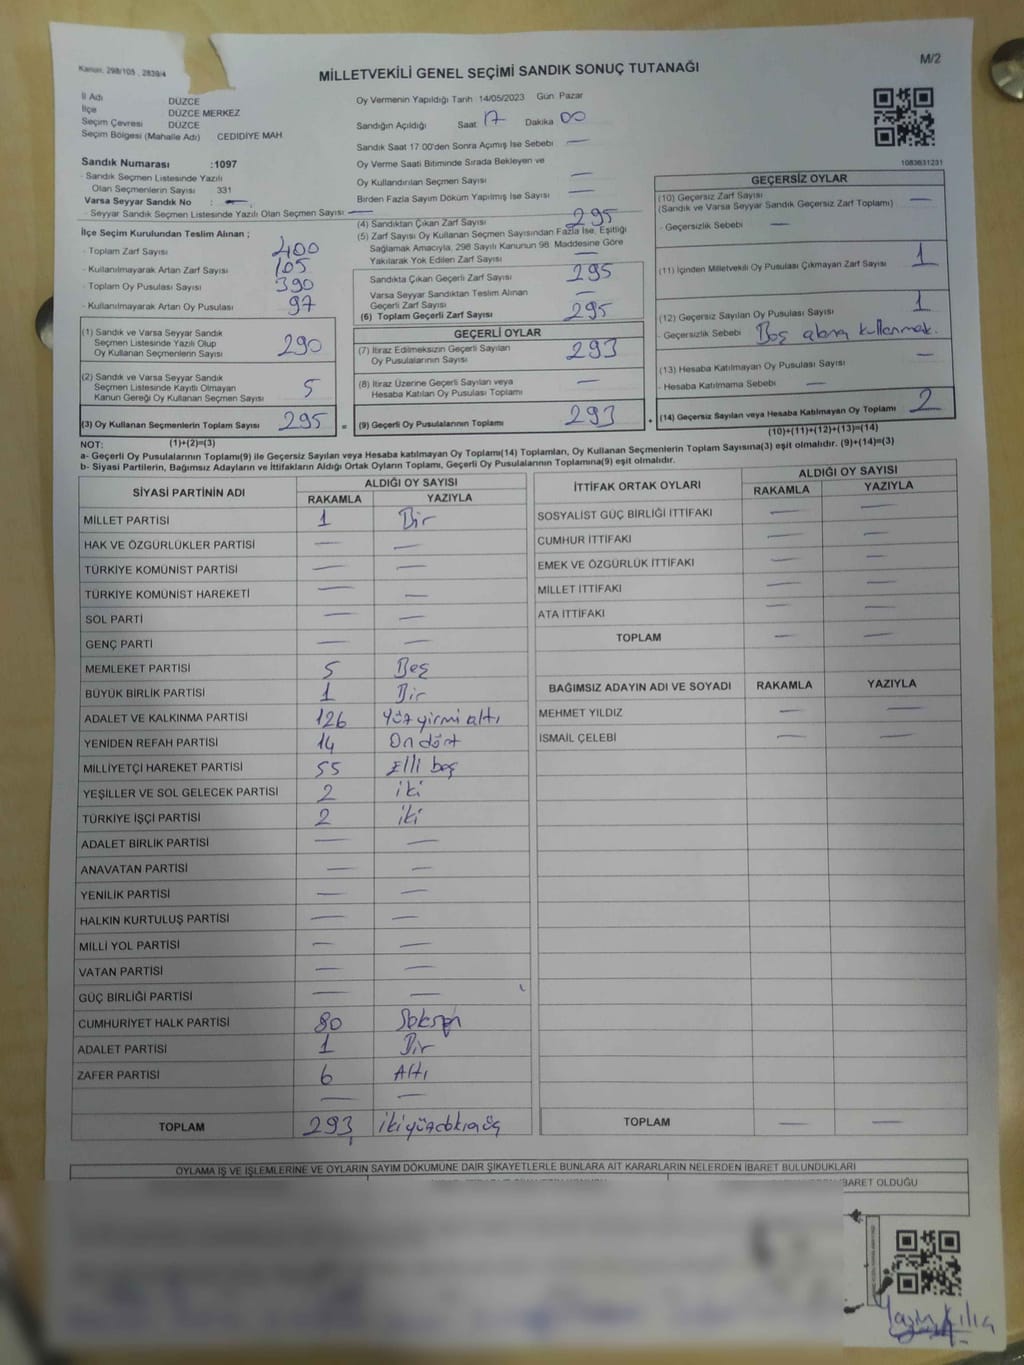 Kanun: 298/105 , 2839/4
M/2
MİLLETVEKİLİ GENEL SEÇİMİ SANDIK SONUÇ TUTANAĞI
İl Adı DÜZCE
İlçe DÜZCE MERKEZ
Seçim Çevresi DÜZCE
Seçim Bölgesi (Mahalle Adı) CEDİDİYE MAH.
Sandık Numarası :1097
- Sandık Seçmen Listesinde Yazılı
Olan Seçmenlerin Sayısı 331
Varsa Seyyar Sandık No : —
- Seyyar Sandık Seçmen Listesinde Yazılı Olan Seçmen Sayısı: —
İlçe Seçim Kurulundan Teslim Alınan ;
- Toplam Zarf Sayısı 400
- Kullanılmayarak Artan Zarf Sayısı 105
- Toplam Oy Pusulası Sayısı 390
- Kullanılmayarak Artan Oy Pusulası 97
(1) Sandık ve Varsa Seyyar Sandık
Seçmen Listesinde Yazılı Olup
Oy Kullanan Seçmenlerin Sayısı 290
(2) Sandık ve Varsa Seyyar Sandık
Seçmen Listesinde Kayıtlı Olmayan
Kanun Gereği Oy Kullanan Seçmen Sayısı 5
(3) Oy Kullanan Seçmenlerin Toplam Sayısı 295 =
Oy Vermenin Yapıldığı Tarih 14/05/2023 Gün Pazar
Sandığın Açıldığı Saat 17 Dakika 00
Sandık Saat 17:00'den Sonra Açımış İse Sebebi —
Oy Verme Saati Bitiminde Sırada Bekleyen ve
Oy Kullandırılan Seçmen Sayısı —
Birden Fazla Sayım Döküm Yapılmış İse Sayısı —
(4) Sandıktan Çıkan Zarf Sayısı 295
(5) Zarf Sayısı Oy Kullanan Seçmen Sayısından Fazla İse, Eşitliği
Sağlamak Amacıyla, 298 Sayılı Kanunun 98. Maddesine Göre
Yakılarak Yok Edilen Zarf Sayısı —
Sandıkta Çıkan Geçerli Zarf Sayısı 295
Varsa Seyyar Sandıktan Teslim Alınan
Geçerli Zarf Sayısı —
(6) Toplam Geçerli Zarf Sayısı 295
GEÇERLİ OYLAR
(7) İtiraz Edilmeksizin Geçerli Sayılan
Oy Pusulalarının Sayısı 293
(8) İtiraz Üzerine Geçerli Sayılan veya
Hesaba Katılan Oy Pusulası Toplamı —
(9) Geçerli Oy Pusulalarının Toplamı 293 +
1083631231
GEÇERSİZ OYLAR
(10) Geçersiz Zarf Sayısı —
(Sandık ve Varsa Seyyar Sandık Geçersiz Zarf Toplamı)
- Geçersizlik Sebebi —
(11) İçinden Milletvekili Oy Pusulası Çıkmayan Zarf Sayısı 1
(12) Geçersiz Sayılan Oy Pusulası Sayısı 1
- Geçersizlik Sebebi Boş alana kullanmak.
(13) Hesaba Katılmayan Oy Pusulası Sayısı —
- Hesaba Katılmama Sebebi —
(14) Geçersiz Sayılan veya Hesaba Katılmayan Oy Toplamı 2
(10)+(11)+(12)+(13)=(14)
NOT: (1)+(2)=(3)
a- Geçerli Oy Pusulalarının Toplamı(9) ile Geçersiz Sayılan veya Hesaba katılmayan Oy Toplamı(14) Toplamları, Oy Kullanan Seçmenlerin Toplam Sayısına(3) eşit olmalıdır. (9)+(14)=(3)
b- Siyasi Partilerin, Bağımsız Adayların ve İttifakların Aldığı Ortak Oyların Toplamı, Geçerli Oy Pusulalarının Toplamına(9) eşit olmalıdır.
SİYASİ PARTİNİN ADI ALDIĞI OY SAYISI
RAKAMLA YAZIYLA
MİLLET PARTİSİ 1 Bir
HAK VE ÖZGÜRLÜKLER PARTİSİ — —
TÜRKİYE KOMÜNİST PARTİSİ — —
TÜRKİYE KOMÜNİST HAREKETİ — —
SOL PARTİ — —
GENÇ PARTİ — —
MEMLEKET PARTİSİ 5 Beş
BÜYÜK BİRLİK PARTİSİ 1 Bir
ADALET VE KALKINMA PARTİSİ 126 Yüz yirmi altı
YENİDEN REFAH PARTİSİ 14 On dört
MİLLİYETÇİ HAREKET PARTİSİ 55 Elli beş
YEŞİLLER VE SOL GELECEK PARTİSİ 2 iki
TÜRKİYE İŞÇİ PARTİSİ 2 iki
ADALET BİRLİK PARTİSİ — —
ANAVATAN PARTİSİ — —
YENİLİK PARTİSİ — —
HALKIN KURTULUŞ PARTİSİ — —
MİLLİ YOL PARTİSİ — —
VATAN PARTİSİ — —
GÜÇ BİRLİĞİ PARTİSİ — —
CUMHURİYET HALK PARTİSİ 80 Seksen
ADALET PARTİSİ 1 Bir
ZAFER PARTİSİ 6 Altı
— —
TOPLAM 293 ikiyüzdoksanüç
İTTİFAK ORTAK OYLARI ALDIĞI OY SAYISI
RAKAMLA YAZIYLA
SOSYALİST GÜÇ BİRLİĞİ İTTİFAKI — —
CUMHUR İTTİFAKI — —
EMEK VE ÖZGÜRLÜK İTTİFAKI — —
MİLLET İTTİFAKI — —
ATA İTTİFAKI — —
TOPLAM — —
BAĞIMSIZ ADAYIN ADI VE SOYADI RAKAMLA YAZIYLA
MEHMET YILDIZ — —
İSMAİL ÇELEBİ — —
TOPLAM — —
OYLAMA İŞ VE İŞLEMLERİNE VE OYLARIN SAYIM DÖKÜMÜNE DAİR ŞİKAYETLERLE BUNLARA AİT KARARLARIN NELERDEN İBARET BULUNDUKLARI
İBARET OLDUĞU